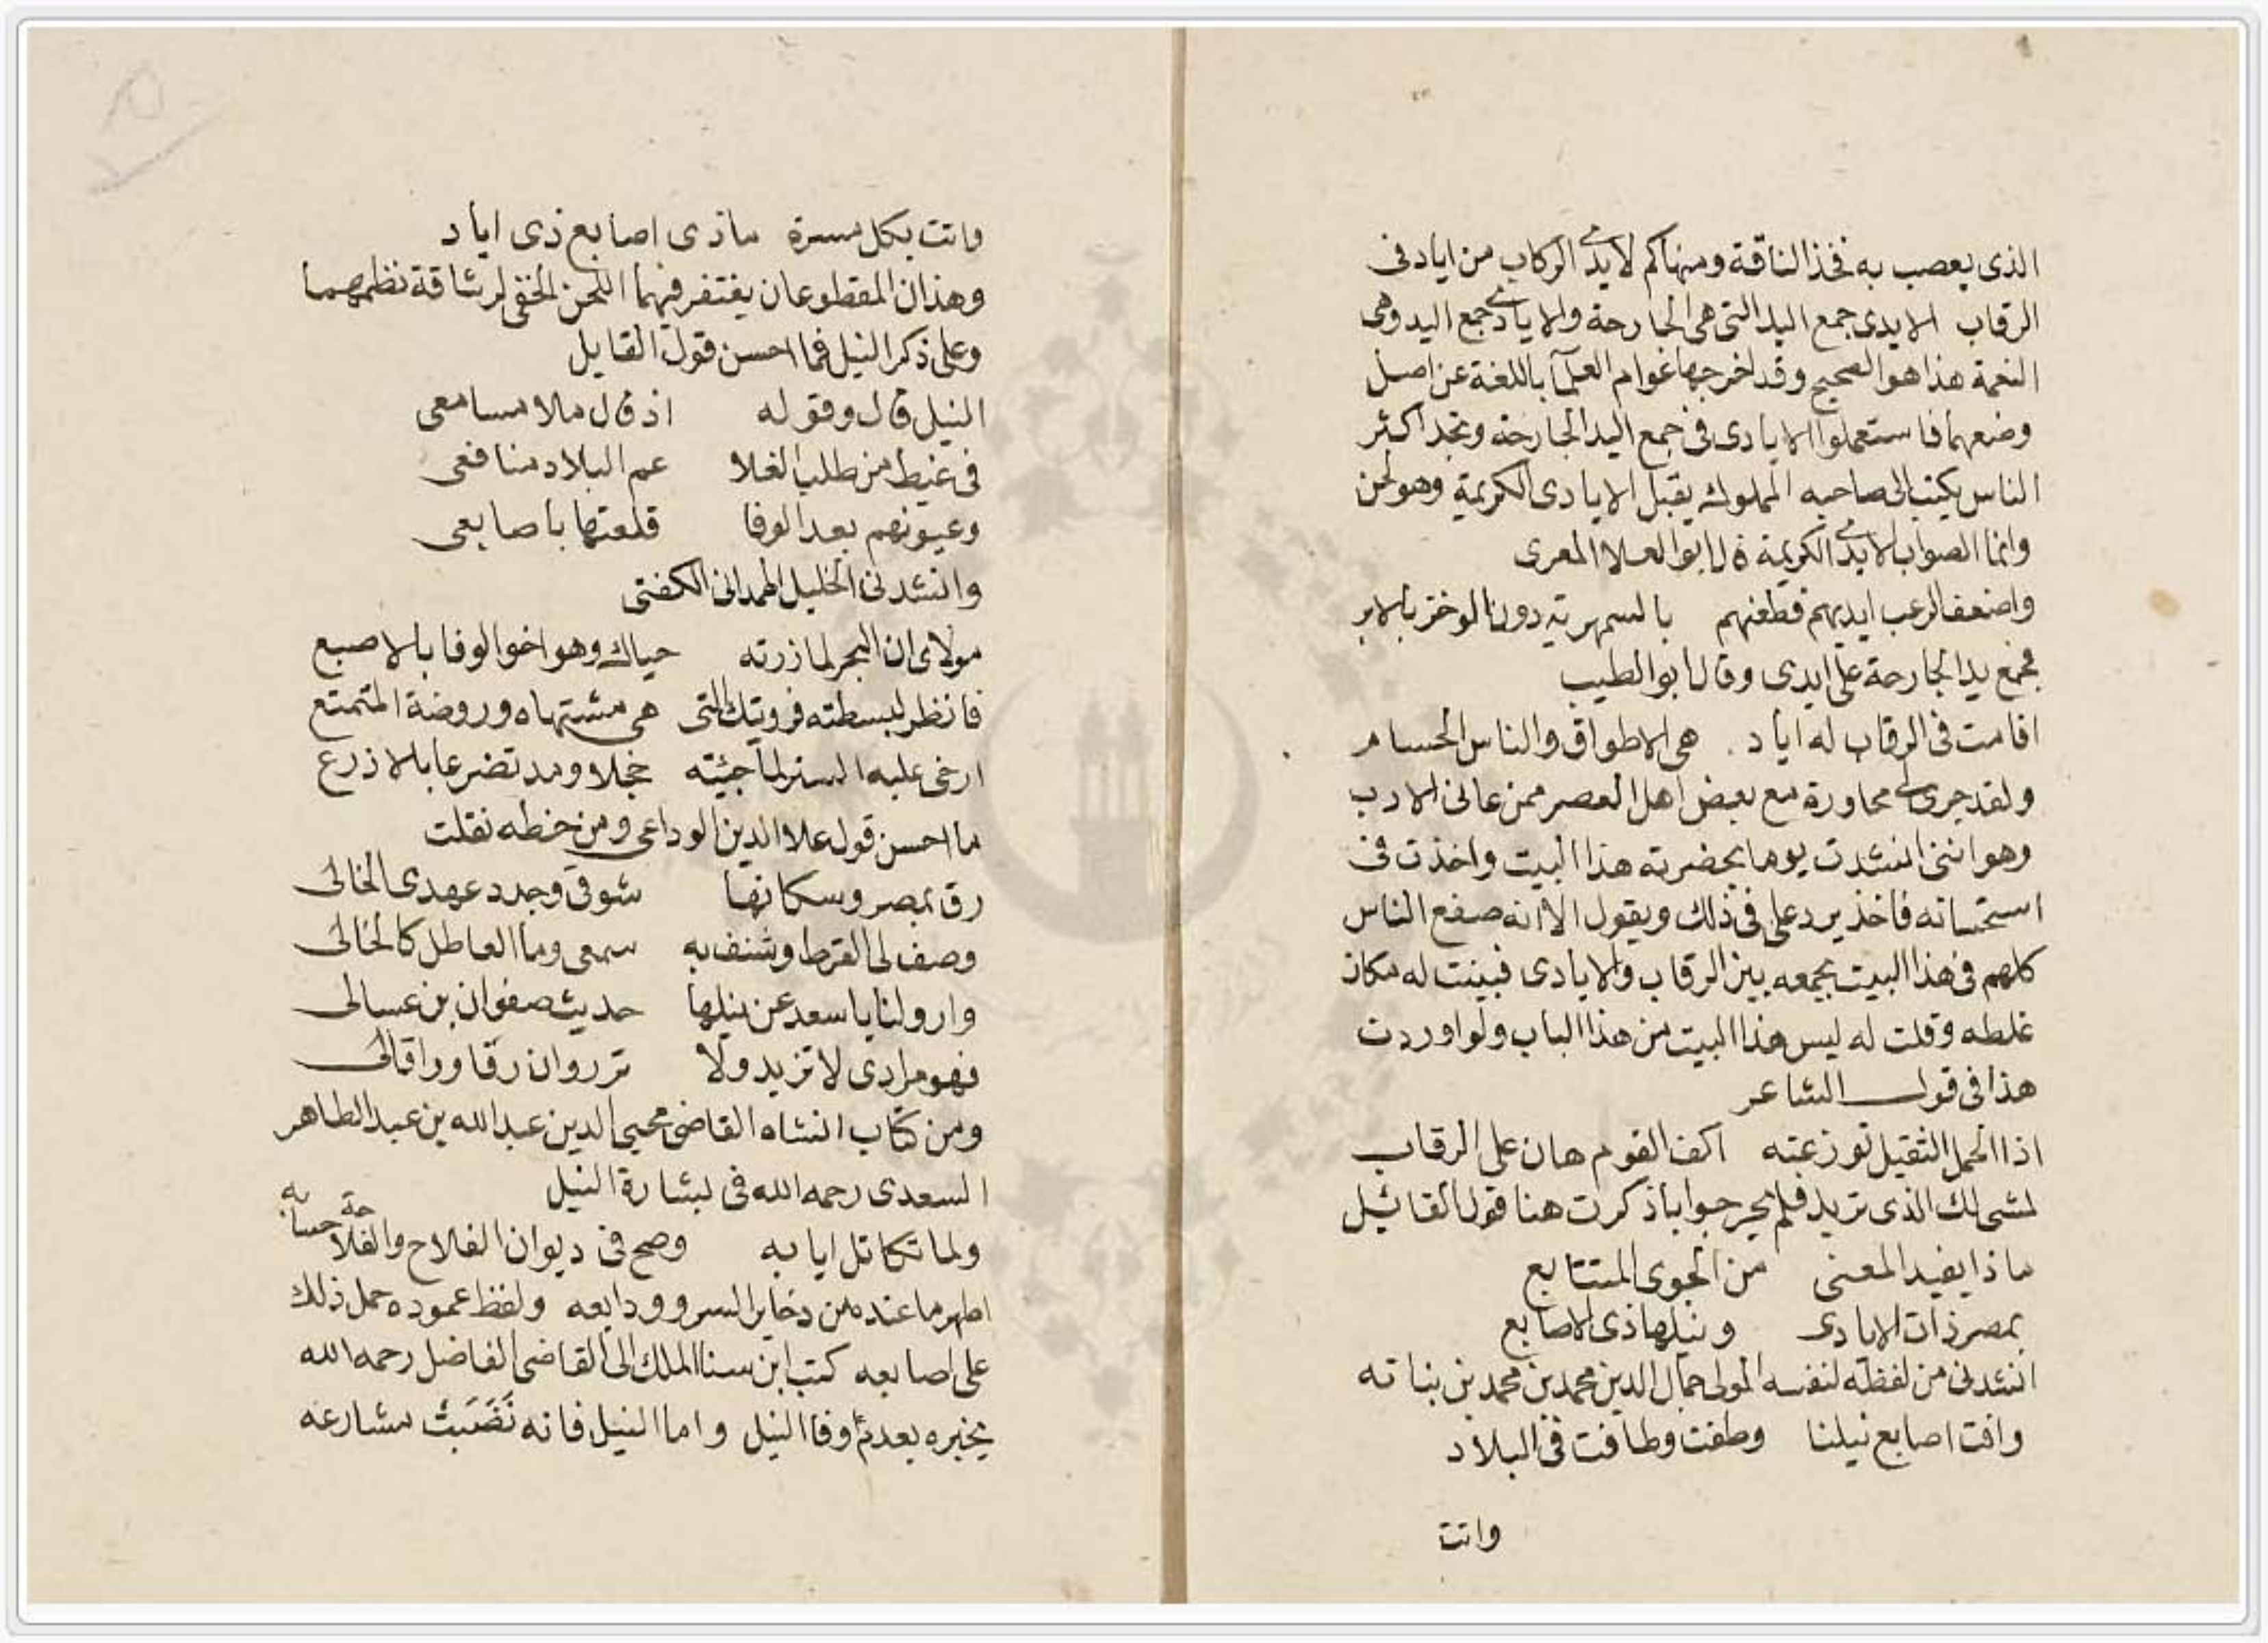 الذى يعصب به فخذ الناقة ومنها كم لايدى الركاب من اياد فى
الرقاب الايدى جمع اليد التى هى الجارحة والايادى جمع اليد وهى
النعمة هذا هو الصحيح وقد اخرجها عوام العلمآ باللغة عن اصل
وضعها فاستعملوا الايادى فى جمع اليد الجارحة وتجد اكثر
الناس يكتب الى صاحبه المملوك يقبل الايادى الكريمة وهو لحن
وانما الصواب الايدى الكريمة قال ابو العلا المعرى
واضعف الرعب ايديهم فطعنهم بالسمهرية دون الوخز بالابر
فجمع يد الجارحة على ايدى وقال ابو الطيب
اقامت فى الرقاب له اياد هى الاطواق والناس الحسام
ولقد جرى لى محاورة مع بعض اهل العصر ممن عانى الادب
وهو اننى انشدت يوما بحضرته هذا البيت واخذت فى
استحسانه فاخذ يرد على فى ذلك ويقول الا انه صفع الناس
كلهم فى هذا البيت بجمعه بين الرقاب والايادى فبينت له مكان
غلطه وقلت له ليس هذا البيت من هذا الباب ولو اوردت
هذا فى قول الشاعر
اذا الحمل الثقيل توزعته اكف القوم هان على الرقاب
لمشى لك الذى تريد فلم يحر جوابا ذكرت هنا قول القائل
ماذا يفيد المعنى من الجوى المتتابع
بمصر ذات الايادى ونيلها ذى الاصابع
انشدنى من لفظه لنفسه المولى جمال الدين محمد بن محمد بن نباته
وافت اصابع نيلنا وطفت وطافت فى البلاد
واتت
واتت بكل مسرة ماذى اصابع ذى اياد
وهذان المقطوعان يغتفر فيهما اللحن الخفى لرشاقة نظمهما
وعلى ذكر النيل فما احسن قول القايل
النيل قال وقوله اذ قال ملا مسامعى
فى غيظ من طلب الغلا عم البلاد منافعى
وعيونهم بعد الوفا قلعتها باصابعى
وانشدنى الخليل الهمدانى الكفتى
مولاى ان البحر لما زرته حياك وهو اخو الوفا بالاصبع
فانظر لبسطته فرويتك التى هى مشتهاه وروضة المتمتع
ارخى عليه الستر لما جئته خجلا ومد تضرعا بالاذرع
ما احسن قول علا الدين الوداعى ومن خطه نقلت
رق بمصر وسكانها شوقى وجدد عهدى الخالى
وصف لى القرط وشنف به سمعى وما العاطل كالخالى
وارو لنا يا سعد عن نيلها حديث صفوان بن عسالى
فهو مرادى لا تزيد ولا تر روان رقا وراقالى
ومن كتاب انشاه القاضى محيى الدين عبد الله بن عبد الظاهر
السعدى رحمه الله فى بشارة النيل
ولما تكاتل ايابه وصح فى ديوان الفلاح والفلاحة حسابه
اظهر ما عنده من دخاير السرور ودايعه ولفظ عموده حمل ذلك
على اصابعه كتب ابن سنا الملك الى القاضى الفاضل رحمه الله
يخبره بعدم وفا النيل واما النيل فانه نَضَبَتْ مشارعه